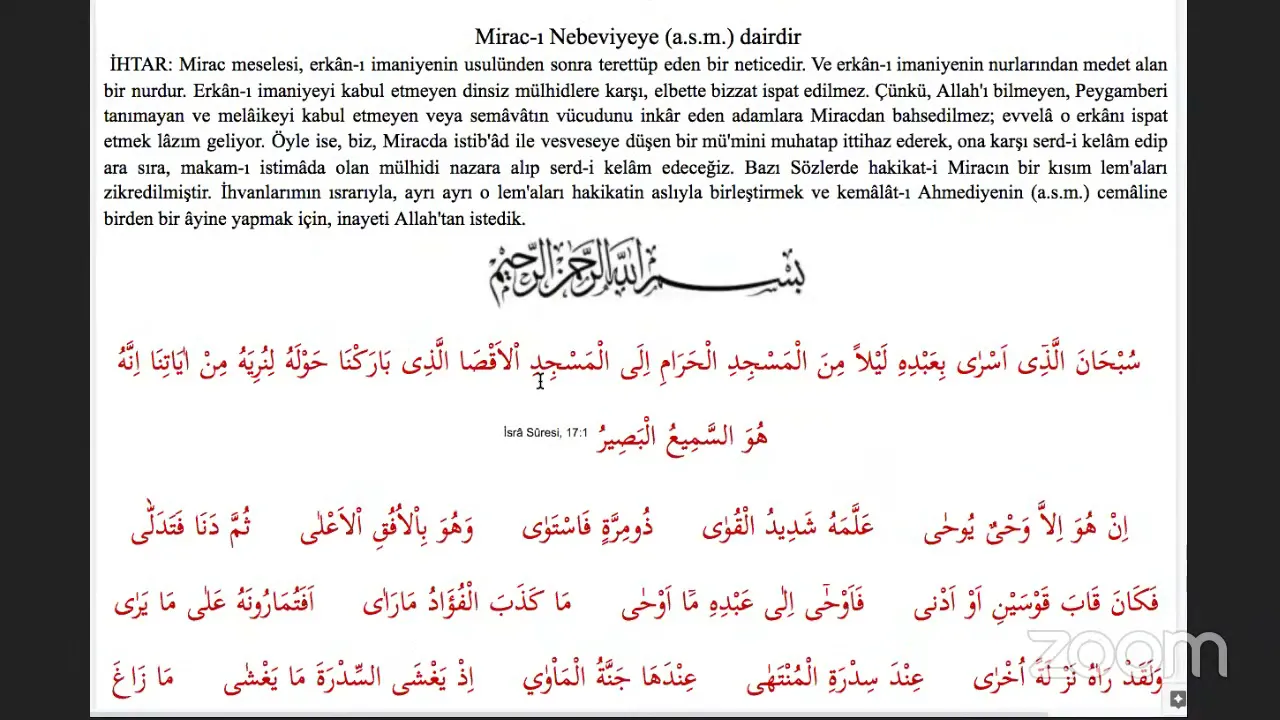 Mirac-ı Nebeviyeye (a.s.m.) dairdir
İHTAR: Mirac meselesi, erkân-ı imaniyenin usulünden sonra terettüp eden bir neticedir. Ve erkân-ı imaniyenin nurlarından medet alan
bir nurdur. Erkân-ı imaniyeyi kabul etmeyen dinsiz mülhidlere karşı, elbette bizzat ispat edilmez. Çünkü, Allah'ı bilmeyen, Peygamberi
tanımayan ve melâikeyi kabul etmeyen veya semâvâtın vücudunu inkâr eden adamlara Miracdan bahsedilmez; evvelâ o erkânı ispat
etmek lâzım geliyor. Öyle ise, biz, Miracda istib'âd ile vesveseye düşen bir mü'mini muhatap ittihaz ederek, ona karşı serd-i kelâm edip
ara sıra, makam-ı istimâda olan mülhidi nazara alıp serd-i kelâm edeceğiz. Bazı Sözlerde hakikat-i Miracın bir kısım lem'aları
zikredilmiştir. İhvanlarımın ısrarıyla, ayrı ayrı o lem'aları hakikatin aslıyla birleştirmek ve kemâlât-ı Ahmediyenin (a.s.m.) cemâline
birden bir âyine yapmak için, inayeti Allah'tan istedik.
بسم الله الرحمن الرحيم
سُبْحَانَ الَّذِٓى اَسْرٰى بِعَبْدِهِ لَيْلاً مِنَ الْمَسْجِدِ الْحَرَامِ اِلَى الْمَسْجِدِ اْلاَقْصَا الَّذِى بَارَكْنَا حَوْلَهُ لِنُرِيَهُ مِنْ اٰيَاتِنَا اِنَّهُ
هُوَ السَّمِيعُ الْبَصِيرُ İsrâ Sûresi, 17:1
اِنْ هُوَ اِلاَّ وَحْىٌ يُوحٰى عَلَّمَهُ شَدِيدُ الْقُوٰى ذُومِرَّةٍ فَاسْتَوٰى وَهُوَ بِاْلاُفُقِ اْلاَعْلٰى ثُمَّ دَنَا فَتَدَلّٰى
فَكَانَ قَابَ قَوْسَيْنِ اَوْ اَدْنٰى فَاَوْحٰٓى اِلٰى عَبْدِهِ مَٓا اَوْحٰى مَا كَذَبَ الْفُؤَادُ مَارَاٰى اَفَتُمَارُونَهُ عَلٰى مَا يَرٰى
وَلَقَدْ رَاٰهُ نَزْلَةً اُخْرٰى عِنْدَ سِدْرَةِ الْمُنْتَهٰى عِنْدَهَا جَنَّةُ الْمَاْوٰي اِذْ يَغْشَى السِّدْرَةَ مَا يَغْشٰى مَا زَاغَ
zoom